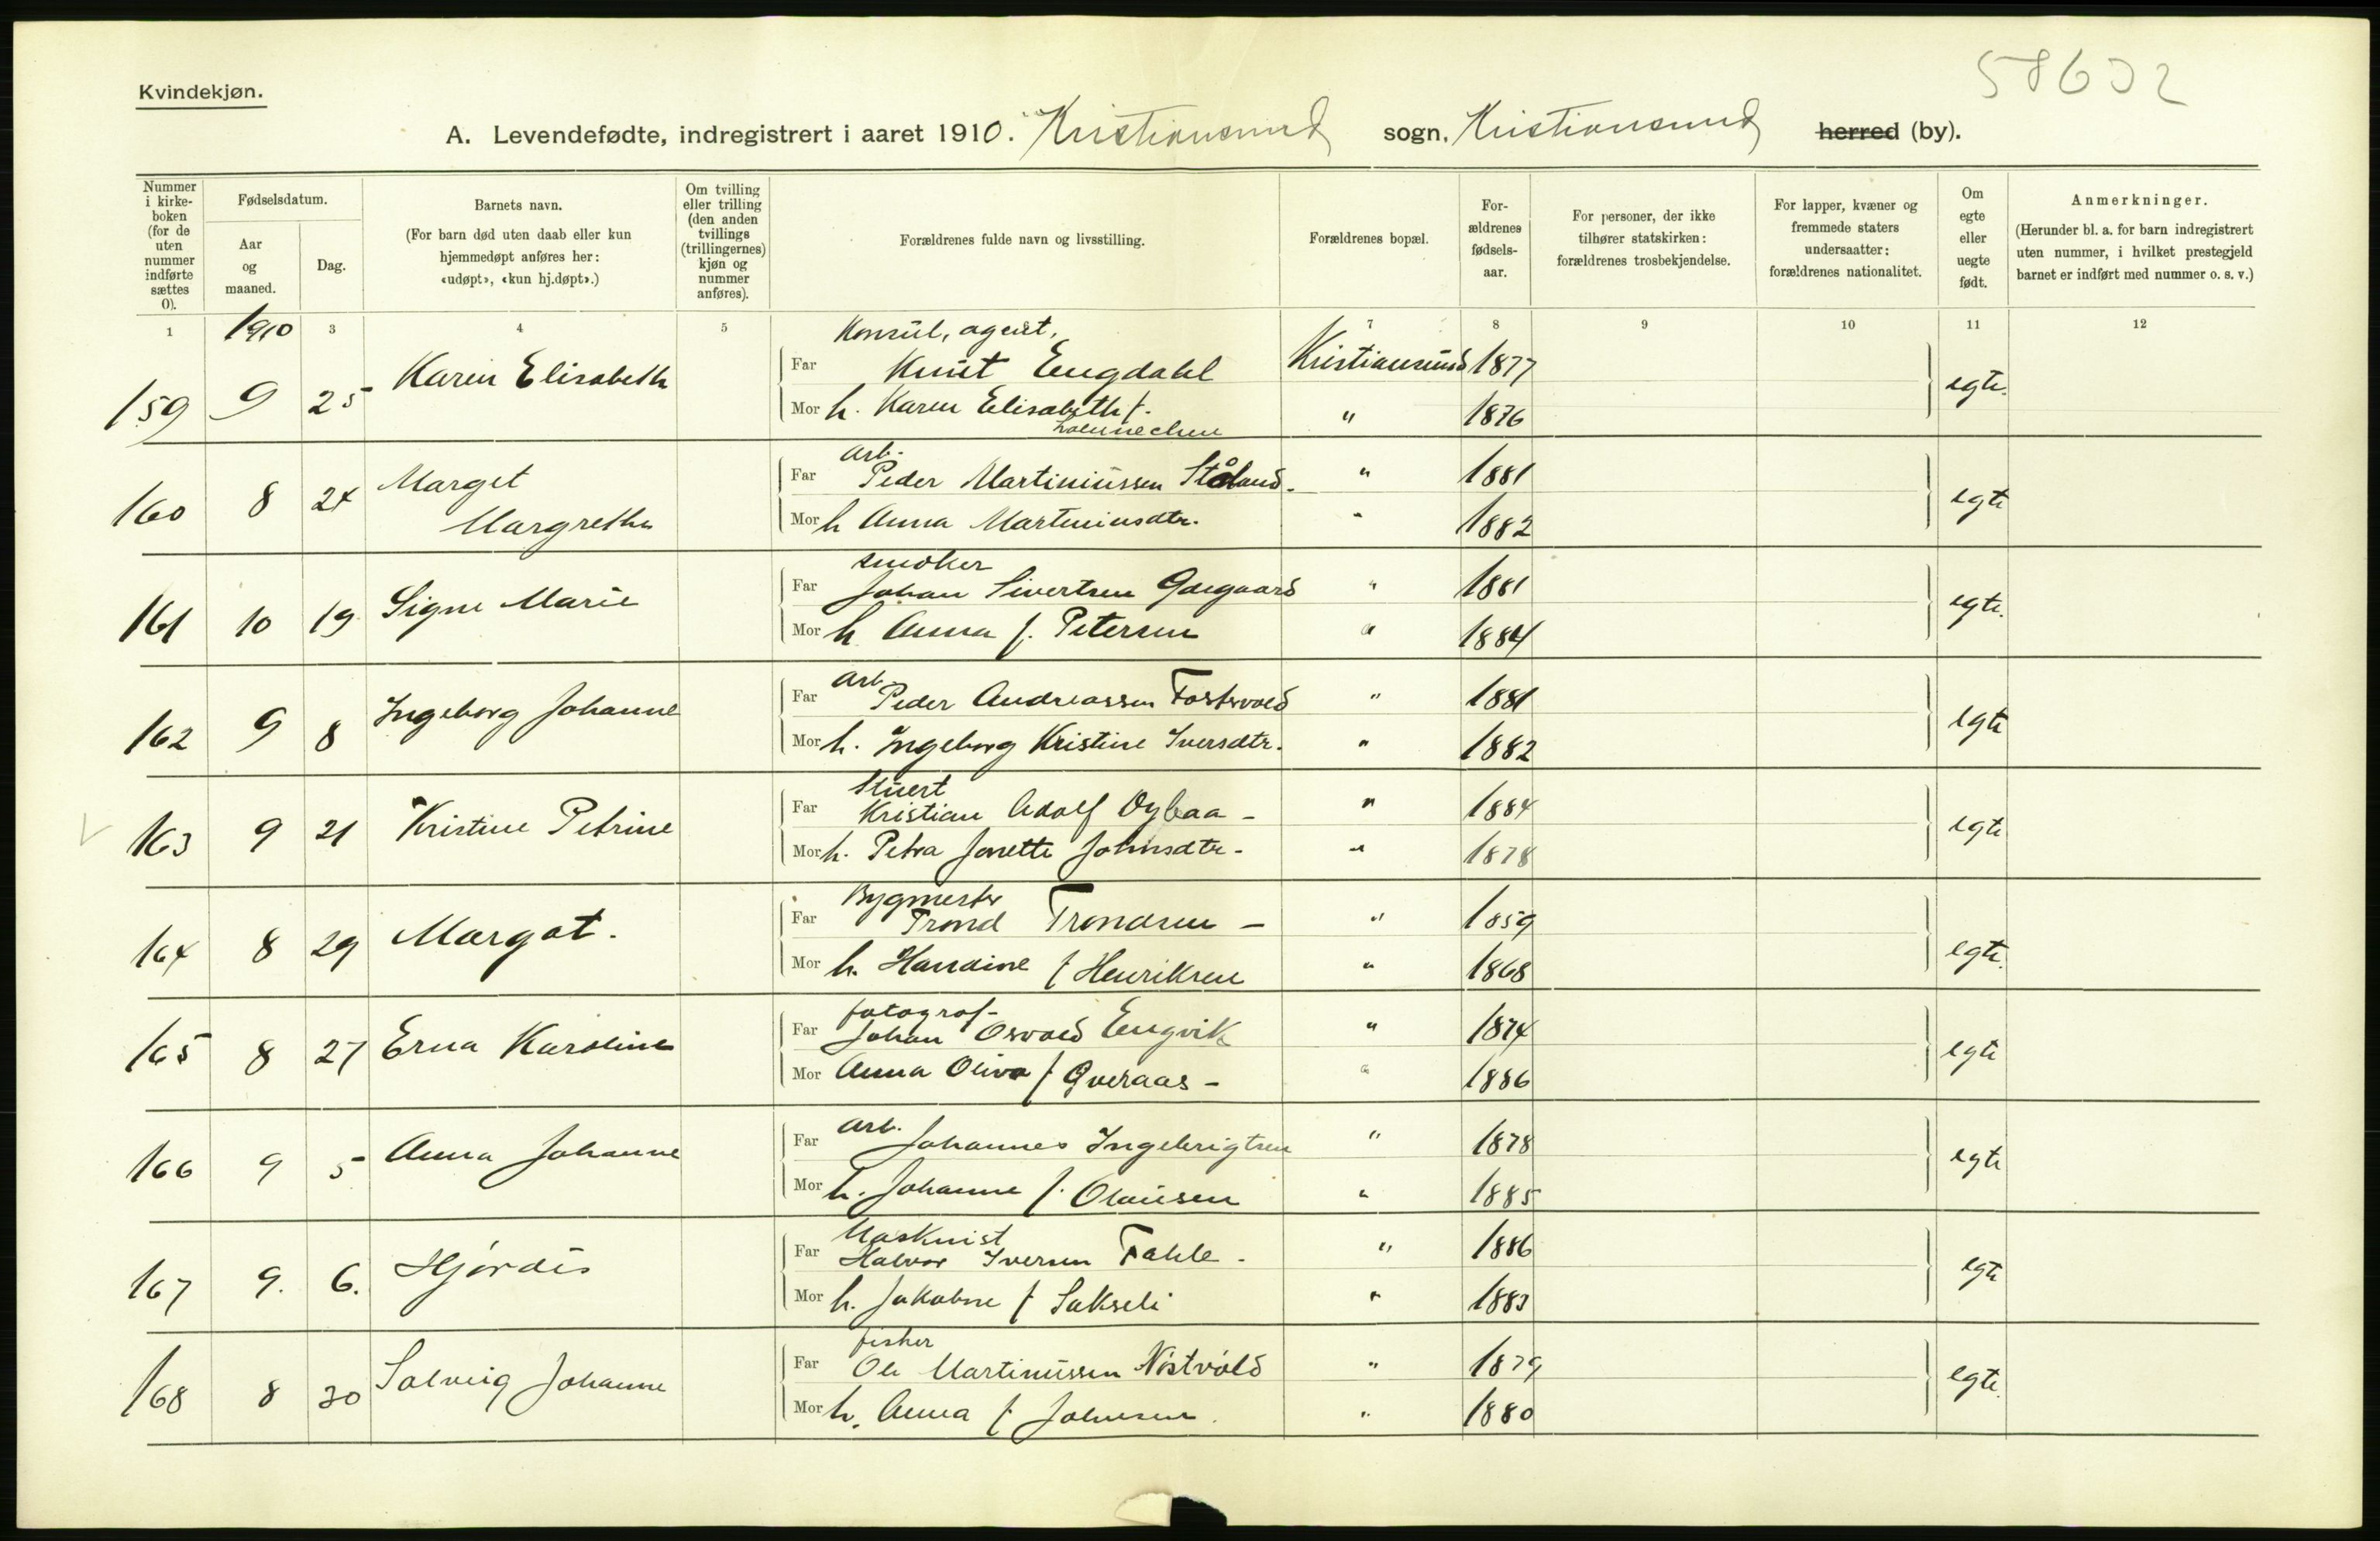 58632
Kvindekjøn.
A. Levendefødte, indregistrert i aaret 1910. Kristiansund sogn, Kristiansund herred (by).
Nummer i kirke-boken (for de uten nummer indførte sættes 0).
Fødselsdatum.
Aar og maaned.
Dag.
Barnets navn.
(For barn død uten daab eller kun hjemmedøpt anføres her: «udøpt», «kun hj.døpt».)
Om tvilling eller trilling (den anden tvillings (trillingernes) kjøn og nummer anføres).
Forældrenes fulde navn og livsstilling.
Forældrenes bopæl.
For-ældrenes fødsels-aar.
For personer, der ikke tilhører statskirken: forældrenes trosbekjendelse.
For lapper, kvæner og fremmede staters undersaatter: forældrenes nationalitet.
Om egte eller uegte født.
Anmerkninger.
(Herunder bl. a. for barn indregistrert uten nummer, i hvilket prestegjeld barnet er indført med nummer o. s. v.)
1 1910 3 4 5 7 8 9 10 11 12
Konsul, agent.
159 9 25 Karen Elisabeth Far Knut Engdahl Kristiansund 1877 egte.
Mor h. Karen Elisabeth f. " 1876
arb.
160 8 24 Marget Far Peder Martiniussen Ståland. " 1881 egte
Margrethe Mor h Anna Martiniusdtr. " 1882
smøker
161 10 19 Signe Marie Far Johan Sivertsen " 1881 egte.
Mor h Anna f. Petersen " 1884
arb.
162 9 8 Ingeborg Johanne Far Peder Andreassen " 1881 egte
Mor h. Ingeborg Kristine Iversdtr. " 1882
Stuert
163 9 21 Kristine Petrine Far Kristian Adolf Dybaa - " 1884 egte
Mor h. Petra Jonette Johnsdtr. " 1878
Bygmester
164 8 29 Margot. Far Trond Trondsen - " 1859 egte.
Mor h. Handine f Henriksen " 1868
fotograf.
165 8 27 Erna Karoline Far Johan Osvald Engvik " 1874 egte
Mor Anna Oliva f Qveraas - " 1886
arb.
166 9 5 Anna Johanne Far Johannes Ingebrigtsen " 1878 egte
Mor h. Johanne f. Olausen " 1885
Maskinist
167 9. 6. Hjørdis Far Halvor Iversen Fahle. " 1886 egte
Mor h. Jakobine f Sakseli " 1883
fisker
168 8 30 Solveig Johanne Far Ole Martinussen Nøstvold " 1879 egte.
Mor h. Anna f Johnsen. " 1880